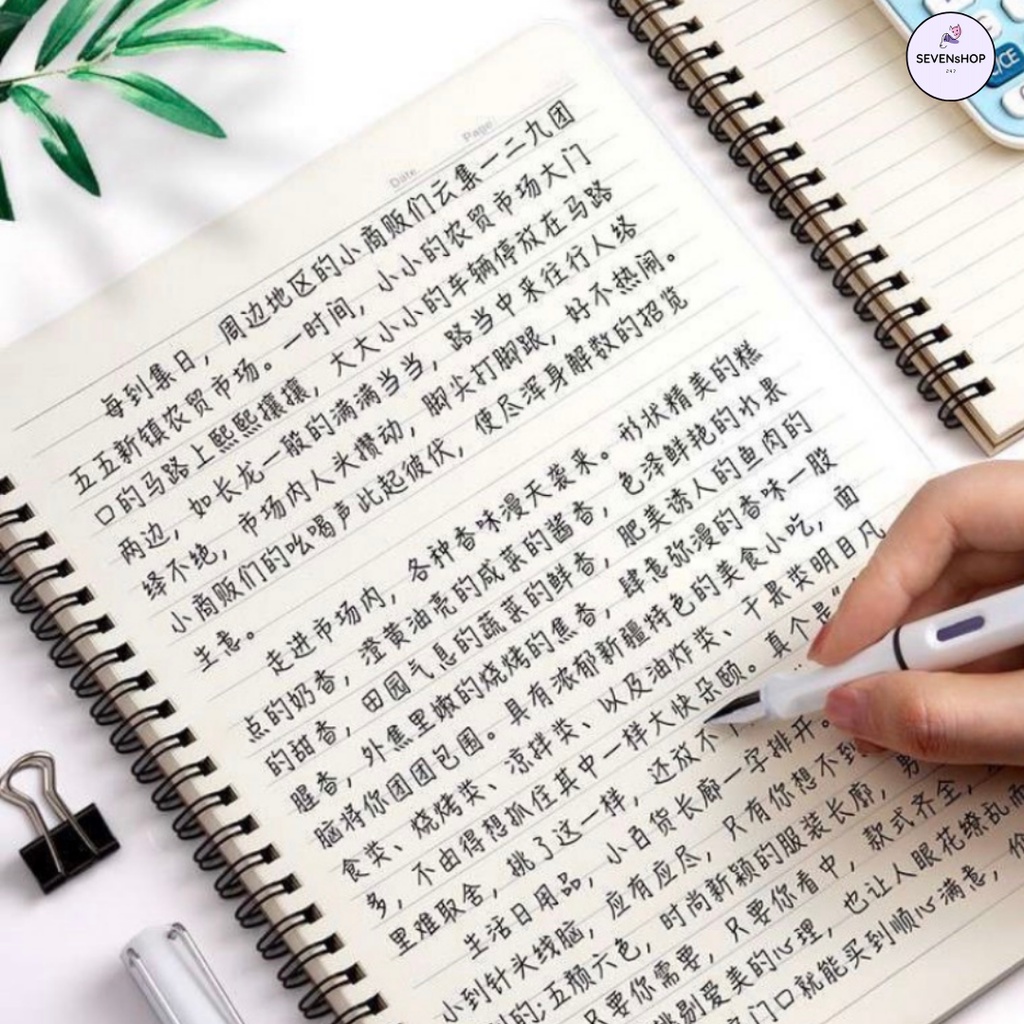 SEVENsHOP
247
Date
Page
每到集日，周边地区的小商贩们云集一二九团
五五新镇农贸市场。一时间，小小的农贸市场大门
口的马路上熙熙攘攘，大大小小的车辆停放在马路
两边，如长龙一般的满满当当，路当中来往行人络
绎不绝，市场内人头攒动，脚尖打脚跟，好不热闹。
小商贩们的吆喝声此起彼伏，使尽浑身解数的招览
生意。
走进市场内，各种香味漫天袭来。形状精美的糕
点的奶香，澄黄油亮的咸菜的酱香，色泽鲜艳的水果
的甜香，田园气息的蔬菜的鲜香，肥美诱人的鱼肉的
腥香，外焦里嫩的烧烤的焦香，肆意弥漫的香味一股
脑将你团团包围。具有浓郁新疆特色的美食小吃，面
食类、烧烤类、凉拌类、以及油炸类、干果类明目凡
多，不由得想抓住其中一样大快朵颐。真个是"
里难取舍，挑了这一样，还放不下
生活日用品，小百货长廊一字排开。
小到针头线脑，应有应尽，只有你想不到
到的;五颜六色，时尚新颖的服装长廊，男
只要你需要，只要你看中，款式齐全，
挑剔爱美的心理，也让人眼花缭乱而
门口就能买到顺心满意，价